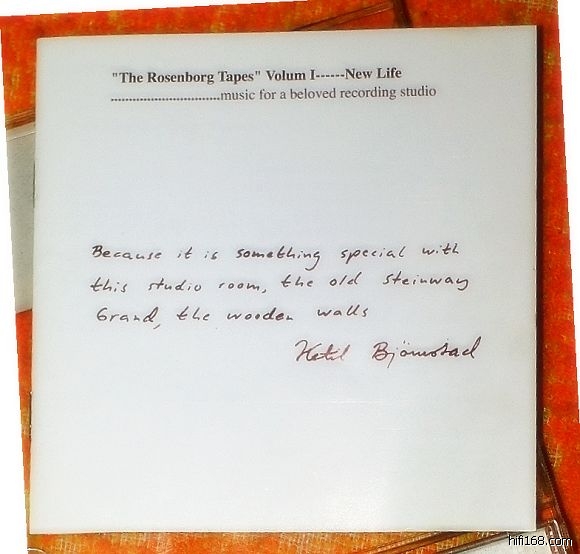 "The Rosenborg Tapes" Volum I------New Life
..............................music for a beloved recording studio
Because it is something special with
this studio room, the old Steinway
Grand, the wooden walls
Ketil Björnstad
hifi168.com